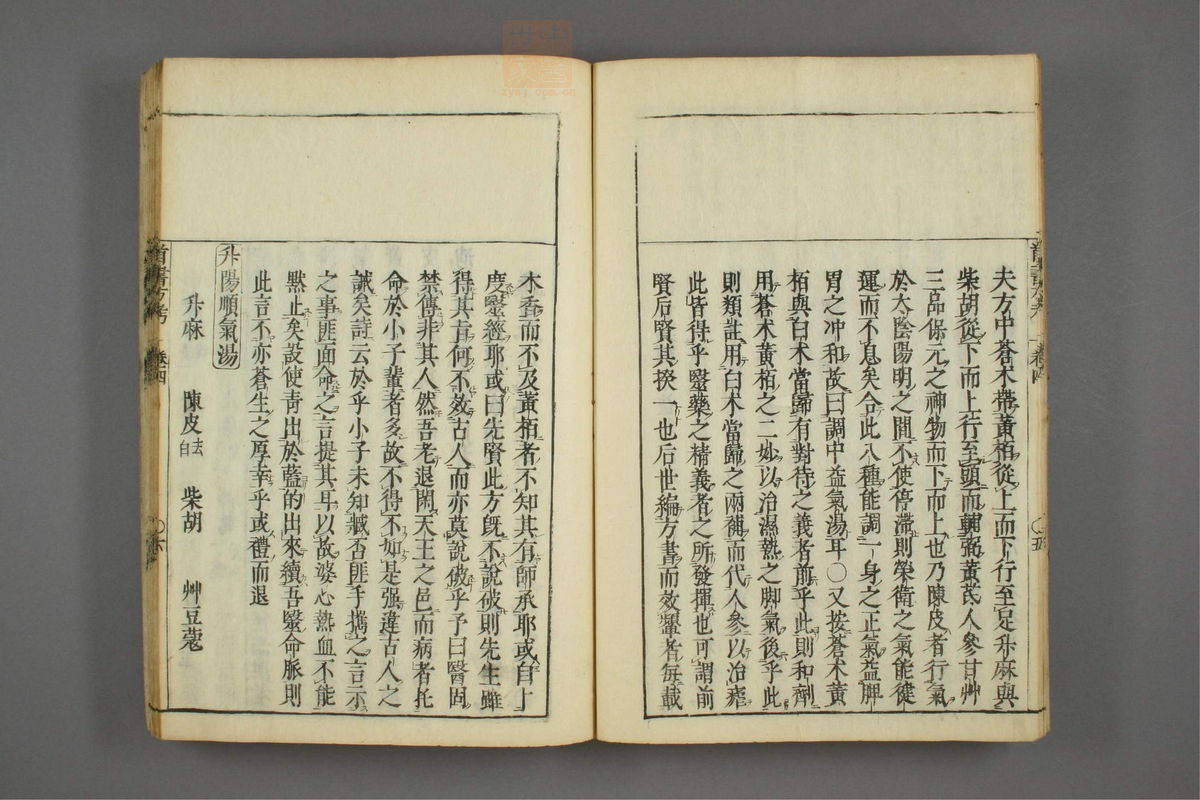 夫方中蒼朮帶黃栢從上而下行至足升麻與
柴胡從下而上行至頭而輔弼黃芪人參甘艸
三品保元之神物而下而上也乃陳皮者行氣
於太陰陽明之間不使停滯則榮衛之氣能健
運而不息矣合此八種能調一身之正氣益脾
胃之冲和故曰調中益氣湯耳〇又按蒼朮黃
栢與白朮當歸有對待之義者前乎此則和劑
用蒼朮黃栢之二妙以治濕熱之脚氣後乎此
則類註用白朮當歸之兩補而代人參以治瘧
此皆得乎毉藥之精義者之所發揮也可謂前
賢后賢其揆一也后世編方書而效顰者每載
木香而不及黃栢者不知其有師承耶或自上
度毉經耶或曰先賢此方旣不說破則先生雖
得其旨何不效古人而亦莫說破乎予曰醫固
禁傳非其人然吾老退閑天王之邑而病者托
命於小子輩者多故不得不如是强違古人之
誡矣詩云於乎小子未知臧否匪手携之言示
之事匪面命之言提其耳以故婆心熱血不能
黙止矣設使靑出於藍的出來續吾毉命脈則
此言不亦蒼生之厚幸乎或禮而退
升陽順氣湯
升麻 陳皮去白 柴胡 艸豆蔲